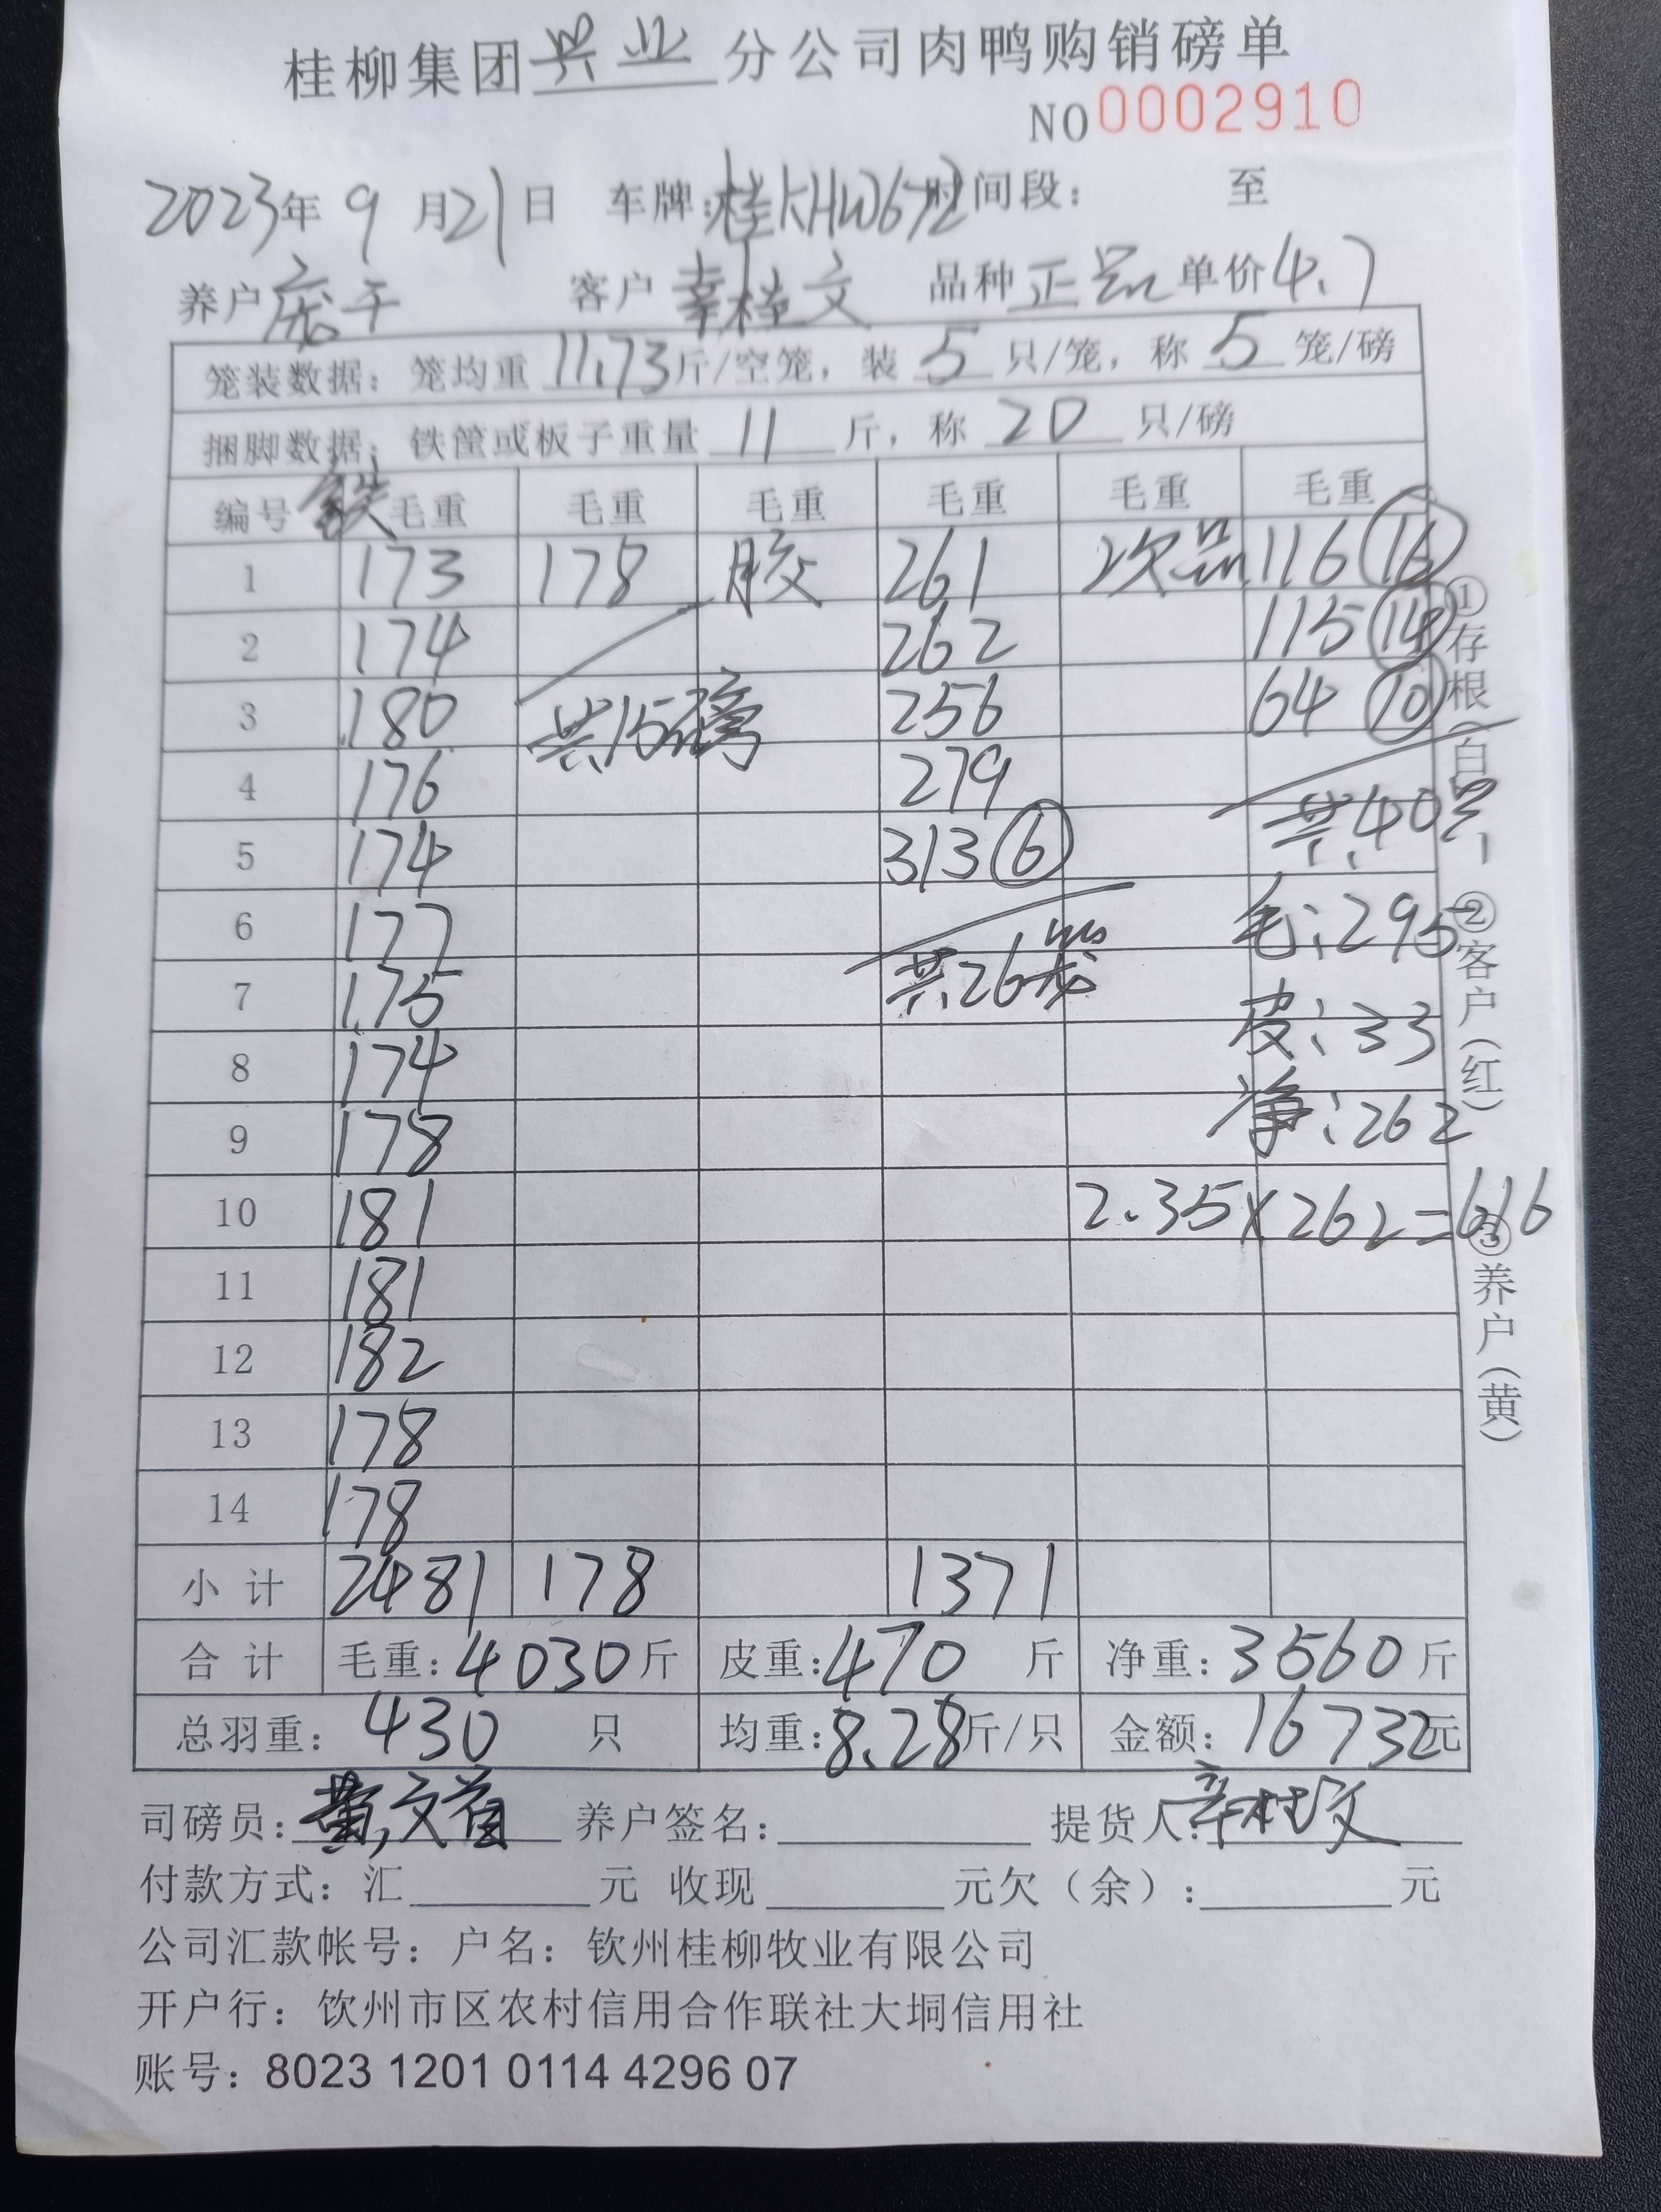 桂柳集团兴业分公司肉鸭购销磅单
NO0002910
2023年9月21日 车牌:桂KHW672 时间段: 至
养户 客户 辛桂文 品种 正品 单价 4.7
笼装数据: 笼均重 11.73 斤/空笼, 装 5 只/笼, 称 5 笼/磅
捆脚数据: 铁筐或板子重量 11 斤, 称 20 只/磅
编号 铁 毛重 毛重 毛重 毛重 毛重 毛重
1 173 178 胶 261 次品 116 (16)
2 174 262 115 (14)
3 180 共15磅 256 64 (10)
4 176 279 共40只
5 174 313 (6)
6 177 共26笼 毛:295
7 175 皮:33
8 174 净:262
9 178
10 181 2.35×262=616
11 181
12 182
13 178
14 178
小计 2481 178 1371
合计 毛重:4030斤 皮重:470斤 净重:3560斤
总羽重: 430 只 均重:8.28斤/只 金额:16732元
司磅员:黄文首 养户签名: 提货人:辛桂文
付款方式: 汇 元 收现 元欠(余): 元
公司汇款帐号: 户名: 钦州桂柳牧业有限公司
开户行: 饮州市区农村信用合作联社大垌信用社
账号: 8023 1201 0114 4296 07
①存根(白)
②客户(红)
③养户(黄)